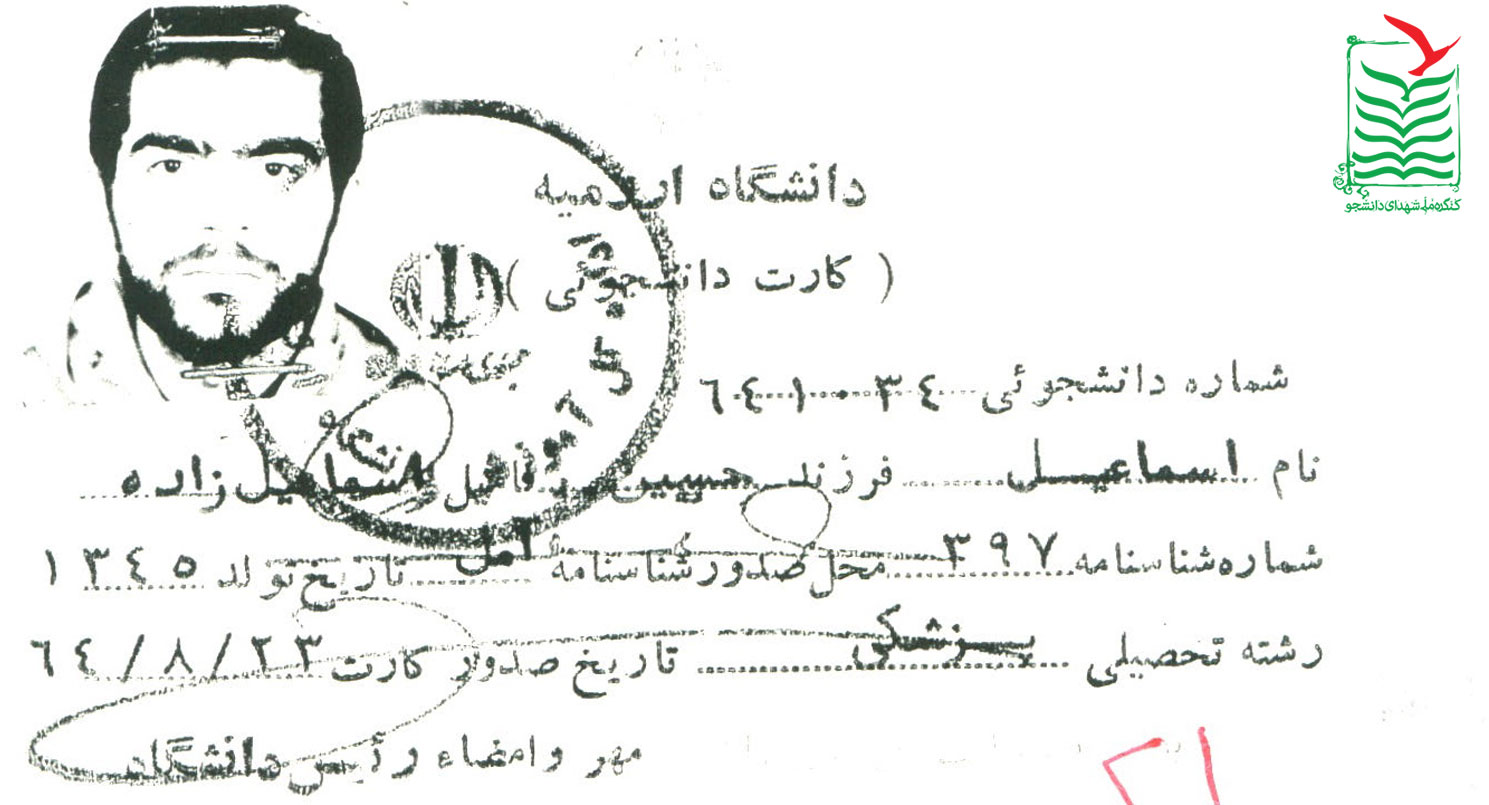 کنگره ملی شهدای دانشجو
دانشگاه ارومیه
( کارت دانشجوئی )
شماره دانشجوئی ٦٤١٠٣٤
نام اسماعیل فرزند حسین فامیل اسماعیل زاده
شماره شناسنامه ٣٩٧ محل صدور شناسنامه آمل تاریخ تولد ١٣٤٥
رشته تحصیلی پزشکی تاریخ صدور کارت ٦٤/٨/٢٣
مهر و امضاء رئیس دانشگاه
٢١